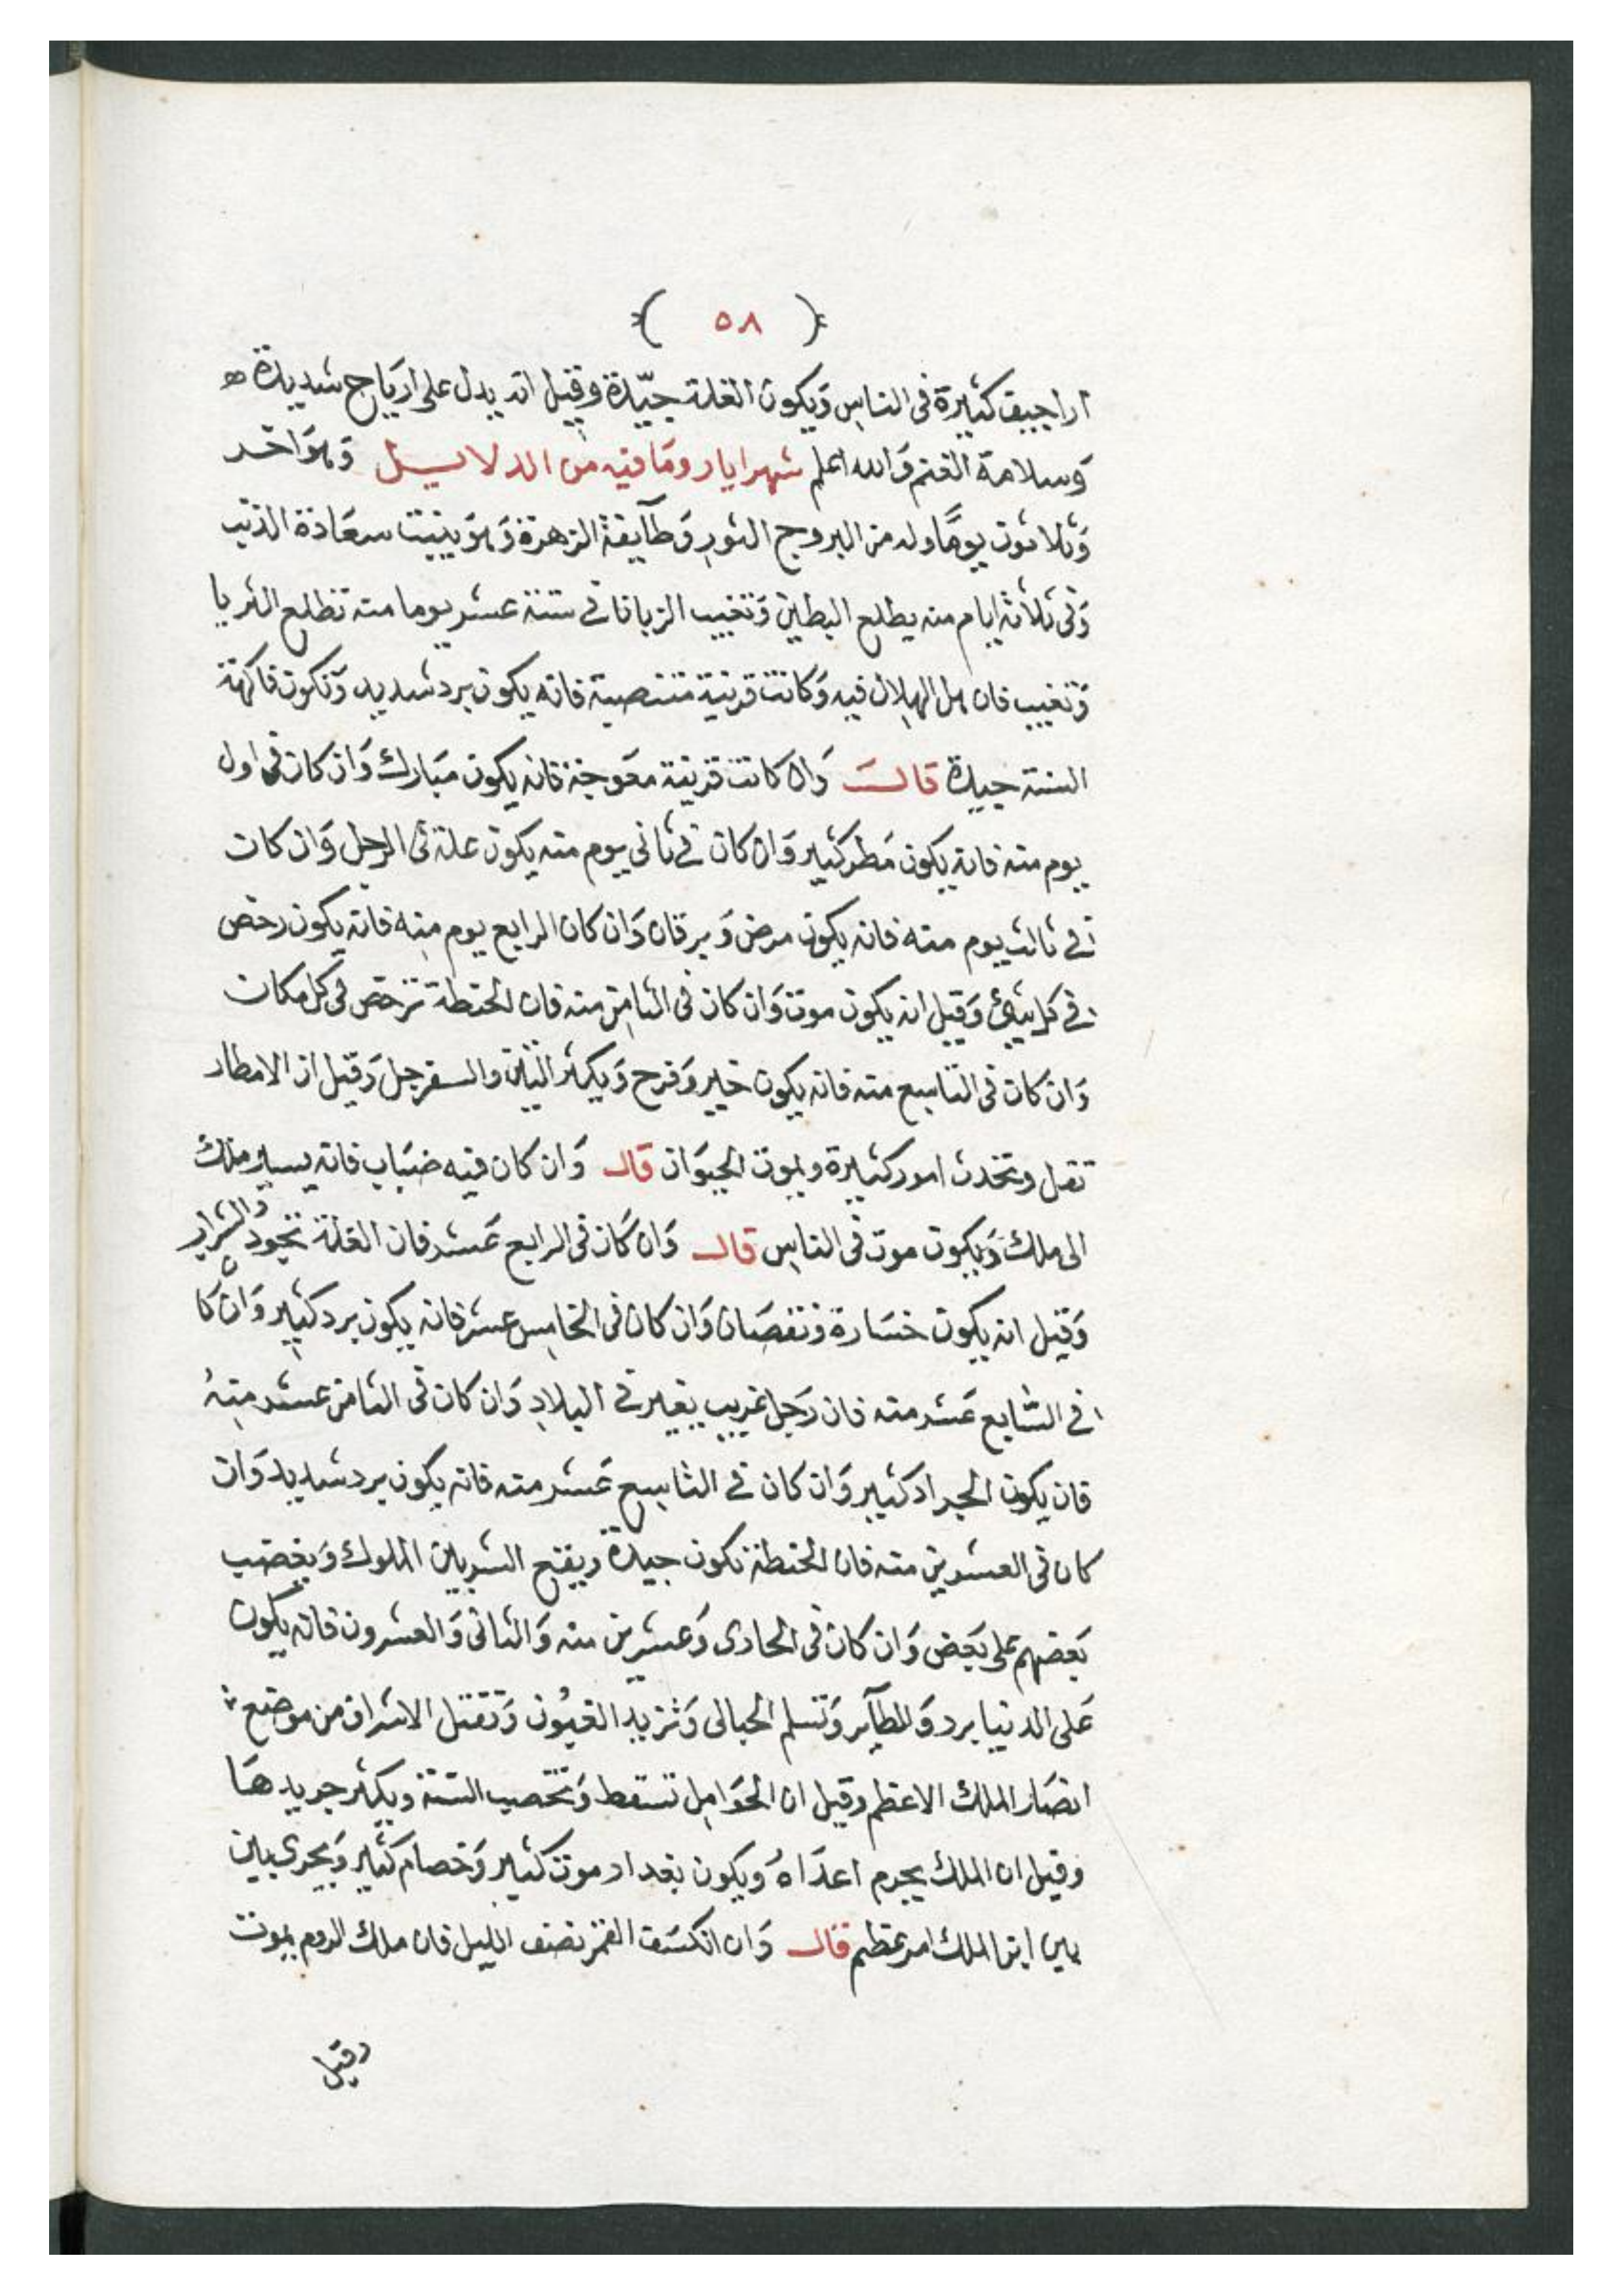 ﴿ ٥٨ ﴾
اراجيف كثيرة فى الناس وَيكون الغلة جيّدة وقيل انه يدل على ارياح شديدة
وَسلامة الغنم وَالله اعلم شهر ايار وما فيه من الدلايل وَهوَ احد
وَثلاثون يومًا وله من البروج الثور وَطآيفة الزهرة وَهوَ بيت سعادة الذنب
وَفى ثلاثة ايام منه يطلع البطين وَتغيب الزبانا فى ستة عشر يوما منه تطلع الثريا
وَتغيب فان هل الهلال فيه وَكانت قرنية منتصبة فانه يكون برد شديد وَتكون فاكهة
السنة جيدة قالـــ وَان كانت قرنية معَوجة فانه يكون مَبارك وَان كان فى اول
يوم منه فانه يكون مَطر كثير وَان كان فى ثانى يوم منه يكون علة فى الرجل وَان كان
فى ثالث يوم منه فانه يكون مرض وَيرقان وَان كان الرابع يوم منه فانه يكون رخص
فى كل شئ وَقيل انه يكون موت وَان كان فى الثامن منه فان الحنطة ترخص فى كل مكان
وَان كان فى التاسع منه فانه يكون خير وَفرح وَيكثر التين والسفرجل وَقيل ان الامطار
تقل وتحدث امور كثيرة ويموت الحيوَان قالـ وَان كان فيه ضبَاب فانه يسير ملك
الى ملك وَيكون موت فى الناس قالـ وَان كَان فى الرابع عَشر فان الغلة تجود والشرار
وَقيل انه يكون خسَارة وَنقصَان وَان كان فى الخامس عشر فانه يكون برد كثير وَان كا
فى السَّابع عَشر منه فان رَجل غريب يغير فى البلاد وَان كان فى الثامن عشر منهُ
فان يكون الجراد كثير وَان كان فى التاسع عَشر منه فانه يكون برد شديد وَان
كان فى العشرين منه فان الحنطة تكون جيدة ويقع الشر بين الملوك وَيغضب
بَعضهم على بَعض وَان كان فى الحادى وَعشرين منه وَالثانى وَالعشرون فانه يكون
عَلى الدنيا برد وَ وَتسلم الحبالى وَتزيد العيُون وَتقتل الاشراف من موضع
انصَار الملك الاعظم وقيل ان الحَوَامل تسقط وَتخصب السّنة ويكثر
وقيل ان الملك اعدَاهُ وَيكون بغداد موت كثير وَخصام كثير وَيجرى بين
بين ابن الملك امر عظيم قالـ وَان انكسَف القمر نصف الليل فان ملك الروم يموت
وقيل